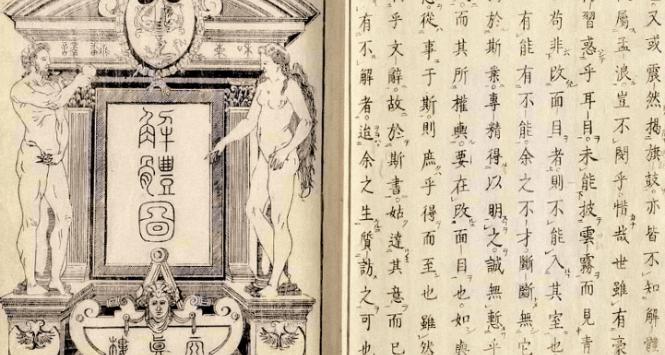 又或震然揭旗鼓亦皆不知解體
屬孟浪豈不閔乎惜哉世雖有豪
習惑乎耳目未能披雲霧而見青
苟非改面目者則不能入其室也
有能有不能余之不才斷斷無它
於斯業專精得以明之誠無慙乎
而其所權輿要在改面目也如
從事于斯則庶乎得而至也雖然
乎文辭故於斯書姑達其意而已
有不解者追余之生質訪之可也
解體圖
天真樓